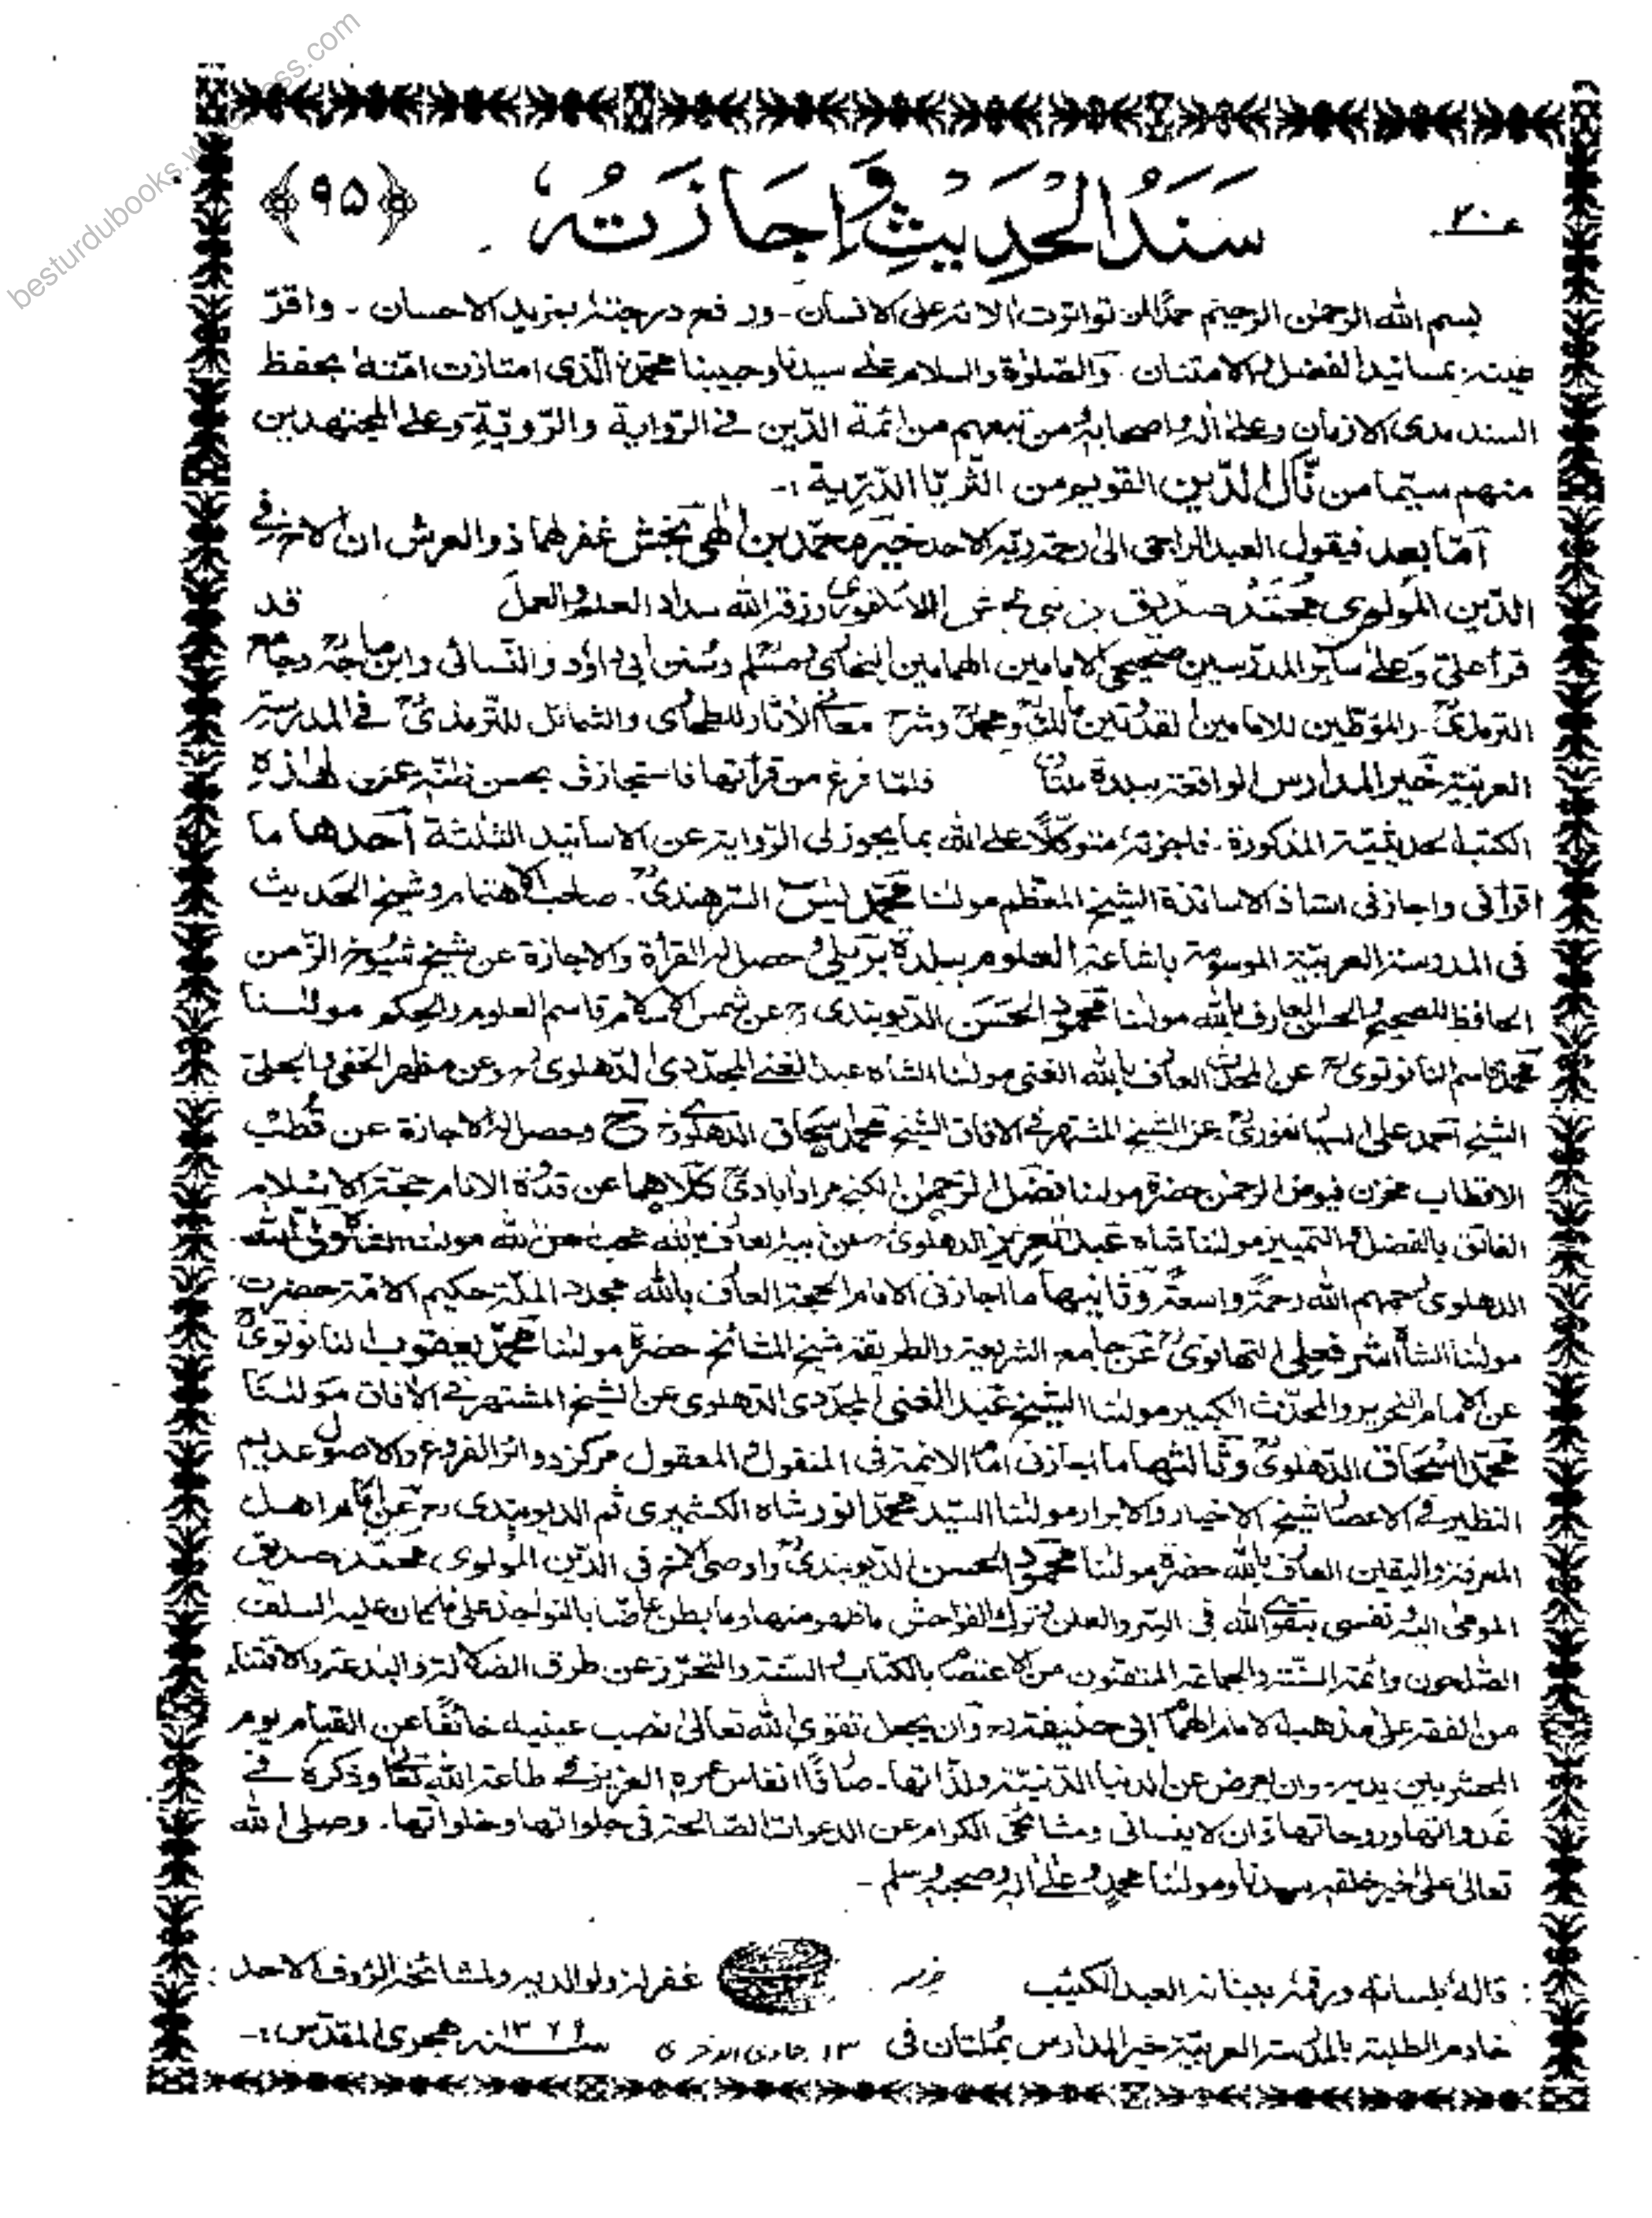 besturdubooks.wordpress.com
ع۳۰
سَنَدُ الْحَدِيْثِ وَاِجَازَتُهٗ
﴿۹۵﴾
بسم الله الرحمٰن الرحيم حمدًا لمن تواترت اٰلائه على الانسان - ورفع درجته بمزيد الاحسان - واقرّ
عينه بمسانيد الفضل والامتنان - والصلوٰة والسلام على سيدنا وحبيبنا محمد الّذى امتازت امّته بحفظ
السند مدى الازمان وعلىٰ اٰله واصحابه ومن تبعهم من ائمة الدّين فى الرّواية والرّوِيّة وعلى المجتهدين
منهم سيّما من نّال الدّين القويم من الثّريّا الدّرّية :-
اَمّا بعد فيقول العبد الراجى الىٰ رحمة ربّه الاحد خَير محمّد بن الٰهى بخش غفر لهما ذو العرش ان الاخ فى
الدّين المولوى مُحَمَّد صديق بن نبى بخش اللائلفورى رزقه الله سداد العلم والعمل قد
قرأ علىّ وعلىٰ سائر المدرّسين صحيحى الامامين الهمامين البخارى ومسلم وسُنن ابى داؤد والنّسائى وابن ماجة وجامع
الترمذىؒ - والمؤطّين للامامين القدوتين مالكؒ ومحمدؒ وشرح معانى الاٰثار للطحاوى والشمائل للتّرمذىؒ فى المدرسة
العربيّة خير المدارس الواقعة ببلدة ملتان فلمّا فرغ من قرأتها فاستجازنى بحسن ظنّه عنى لهٰذه
الكتب الحديثيّة المذكورة - فاجزته متوكّلًا على الله بما يجوز لى الرّواية عن الاسانيد الثلٰثة اَحدها ما
اقرأنى واجازنى استاذ الاساتذة الشيخ المعظم مولٰنا محمّد يٰس السّرهندىؒ - صاحب الاهتمام وشيخ الحديث
فى المدرسة العربيّة الموسومة باشاعة العلوم ببلدة بريلى وحصل له القرأة والاجازة عن شيخ شيوخ الزّمن
الحافظ للصحيح والحسن العارف بالله مولٰنا محمود الحَسَن الديوبندى رح عن شمس الاسلام قاسم العلوم والحِكم مولٰنا
محمد قاسم النانوتوىؒ عن المحدّث العارف بالله الغنى مولٰنا الشاه عبد الغنى المجدّدى الدّهلوىؒ وعن مظهر الخفى والجلىّ
الشيخ احمد على السهارنفورىؒ عن الشيخ المشتهر فى الاٰفاق الشيخ محمد اسحٰق الدهلوىؒ ح وحصل له الاجازة عن قُطب
الاقطاب مخزن فيوض الرحمٰن حضرة مولٰنا فضل الرّحمٰن الكنج مرادآبادىؒ كلاهما عن قدوة الانام حجة الاسلام
الفائق بالفضل والتمييز مولٰنا شاه عبد العزيز الدهلوىؒ عن ابيه العارف بالله مولٰنا الشاه ولى الله
الدهلوى رحمهم الله رحمةً واسعةً وَثانيها ما اجازنى الامام الحجة العارف بالله مجدد الملّة حكيم الامّة حضرت
مولٰنا الشاه اشرف على التهانوىؒ عن جامع الشريعة والطريقة شيخ المشائخ حضرة مولٰنا محمّد يعقوب النانوتوىؒ
عن الامام النحرير والمحدّث الكبير مولٰنا الشيخ عَبد الغنى المجدّدى الدّهلوى عن الشيخ المشتهر فى الاٰفاق مَولٰنا
محمّد اسْحٰق الدّهلوىؒ وَثالثها ما اجازنى امام الائمة فى المنقول والمعقول مركز دوائر الفروع والاصول عديم
النظير فى الاعصار شيخ الاخيار والابرار مولٰنا السيّد محمّد انور شاه الكشميرى ثم الديوبندى رح عن امام اهل
المعرفة واليقين العارف بالله حضرة مولٰنا محمود الحسن الدّيوبندىؒ واوصى الاخ فى الدّين المولوى محمّد صديق
الموصى اليه ونفسى بتقوى الله فى السّر والعلن وترك الفواحش ما ظهر منها وما بطن عاضّا بالنواجذ علىٰ ما كان عليه السلف
الصّٰلحون وائمة السّنة والجماعة المتقنون من الاعتصام بالكتاب والسّنة والتحرّز عن طرق الضّلالة والبدعة والاقتناء
من الفقه علىٰ مذهب الامام الهمام ابى حنيفة رح وان يجعل تقوى الله تعالىٰ نصب عينيه خائفًا عن القيام يوم
المحشر بين يديه - وان يعرض عن الدنيا الدّنيّة ولذّاتها - صارفًا انفاس عمره العزيز فى طاعة الله تعالىٰ وذكره فى
غدواتها وروحاتها وان لا ينسانى ومشائخى الكرام عن الدعوات الصّالحة فى جلواتها وخلواتها - وصلى الله
تعالىٰ علىٰ خير خلقه سيدنا ومولٰنا محمد وعلىٰ اٰله وصحبه وسلم -
: قاله بلسانه ورقمه ببنانه العبد الكئيب غفر له ولوالديه ولمشائخه الرّؤف الاحد :
خادم الطلبة بالمدرسة العربيّة خير المدارس بمُلتان فى ۱۳ جمادى الاخرى سنة ۱۳۷۹ هجرى المقدّس :-